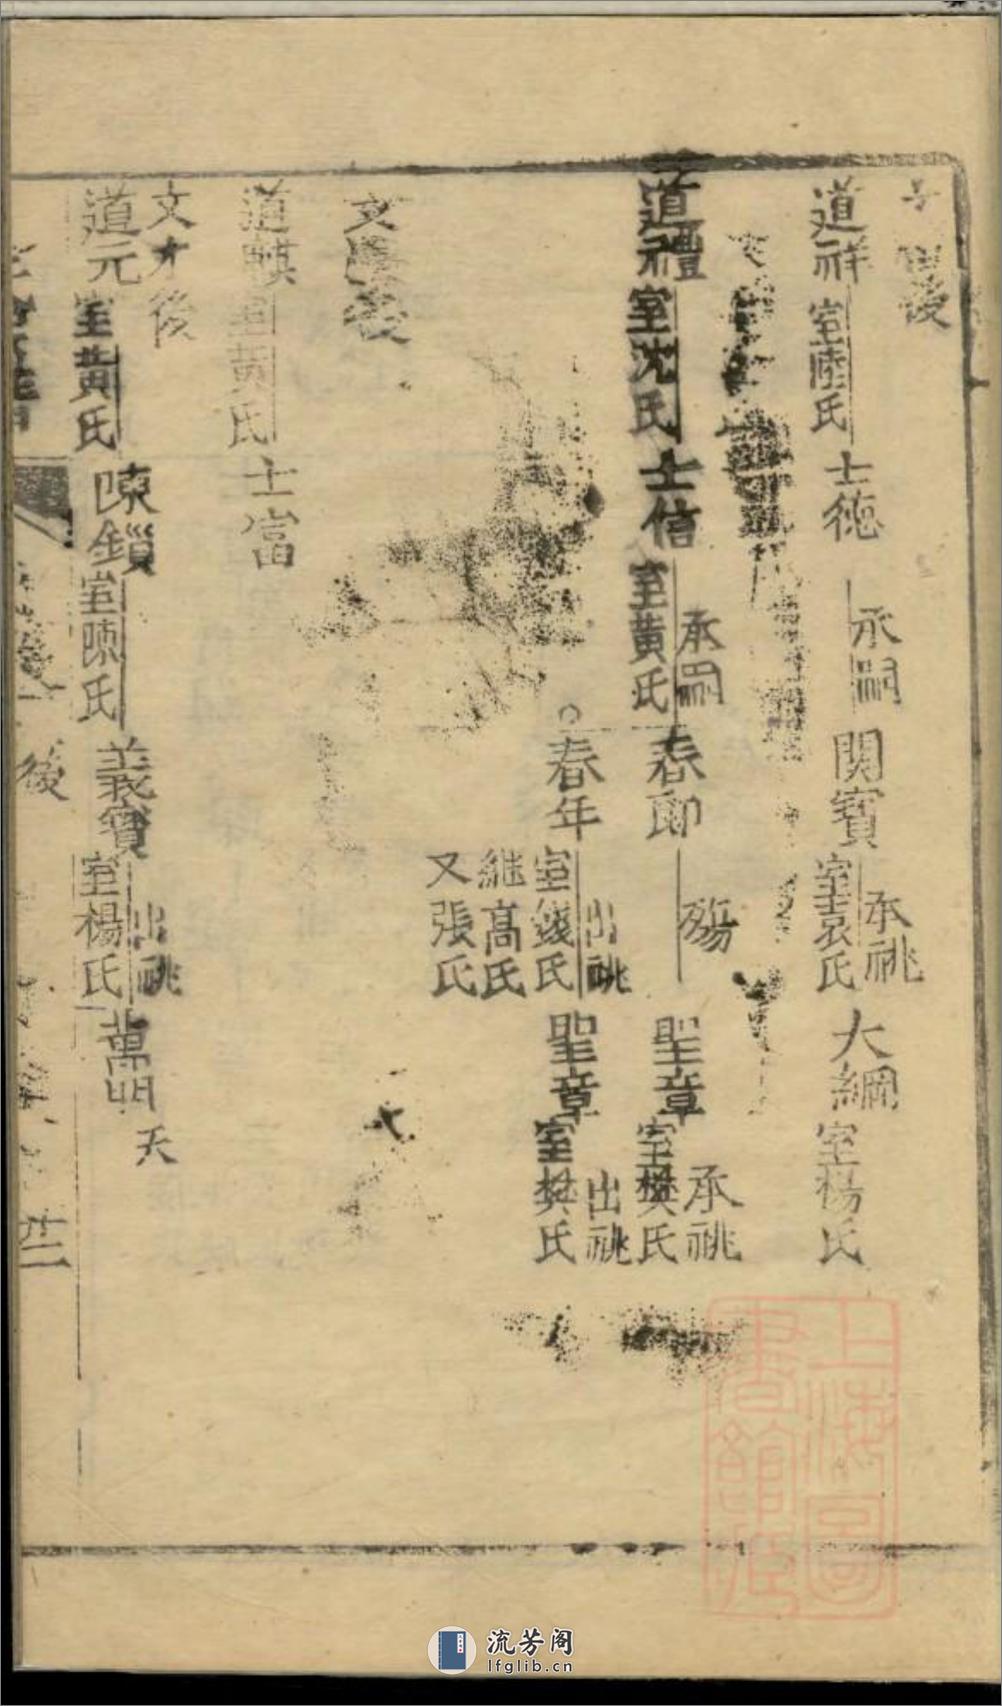 後
道祥 室陸氏 士德 承嗣 関寳 室袁氏 承祧 大綱 室楊氏
道禮 室沈氏 士信 室黃氏 承嗣 春郎 殤 聖章 室樊氏 承祧
春年 室錢氏 継高氏 又張氏 出祧 聖章 室樊氏 出祧
文 後
道麒 室黃氏 士富
文才後
道元 室黃氏 陳鎖 室陳氏 義寳 室楊氏 出祧 萬明 夭
後
十二
上海圖書館藏
流芳阁
lfglib.cn